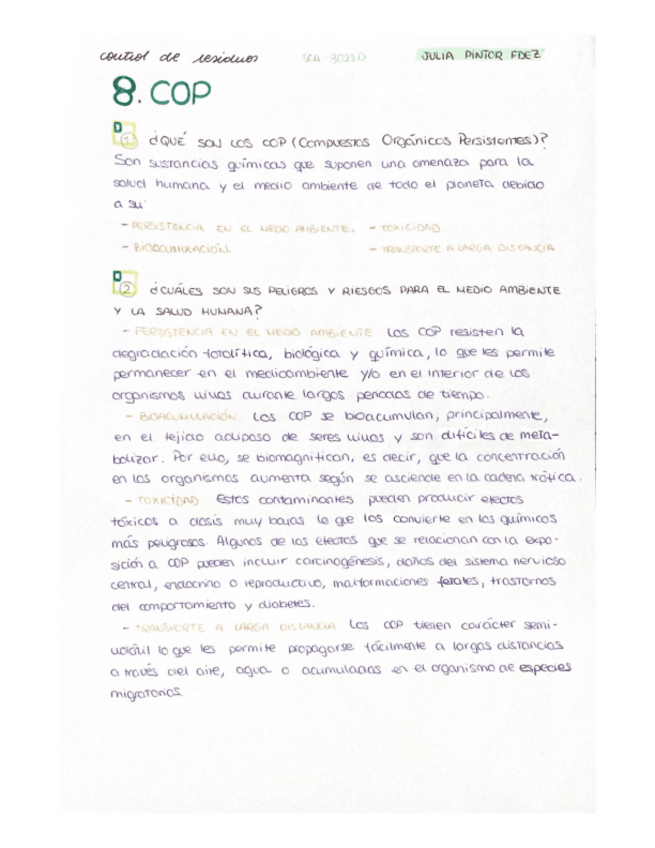 control de residuos SEA 30210 JULIA PINTOR FDEZ
8. COP
D
① ¿QUÉ SON LOS COP (Compuestos Orgánicos Persistentes)?
Son sustancias químicas que suponen una amenaza para la
salud humana y el medio ambiente de todo el planeta debido
a su
- PERSISTENCIA EN EL MEDIO AMBIENTE. - TOXICIDAD
- BIOACUMULACIÓN. - TRANSPORTE A LARGA DISTANCIA
D
② ¿CUÁLES SON SUS PELIGROS Y RIESGOS PARA EL MEDIO AMBIENTE
Y LA SALUD HUMANA?
- PERSISTENCIA EN EL MEDIO AMBIENTE Los COP resisten la
degradación fotolítica, biológica y química, lo que les permite
permanecer en el medioambiente y/o en el interior de los
organismos vivos durante largos periodos de tiempo.
- BIOACUMULACIÓN Los COP se bioacumulan, principalmente,
en el tejido adiposo de seres vivos y son difíciles de meta-
bolizar. Por ello, se biomagnifican, es decir, que la concentración
en los organismos aumenta según se asciende en la cadena trófica.
- TOXICIDAD Estos contaminantes pueden producir efectos
tóxicos a dosis muy bajas lo que los convierte en los químicos
más peligrosos. Algunos de los efectos que se relacionan con la expo-
sición a COP pueden incluir carcinogénesis, daños del sistema nervioso
central, endocrino o reproductivo, malformaciones fetales, trastornos
del comportamiento y diabetes.
- TRANSPORTE A LARGA DISTANCIA Los COP tienen carácter semi-
volátil lo que les permite propagarse fácilmente a largas distancias
a través del aire, agua o acumuladas en el organismo de especies
migratorias.